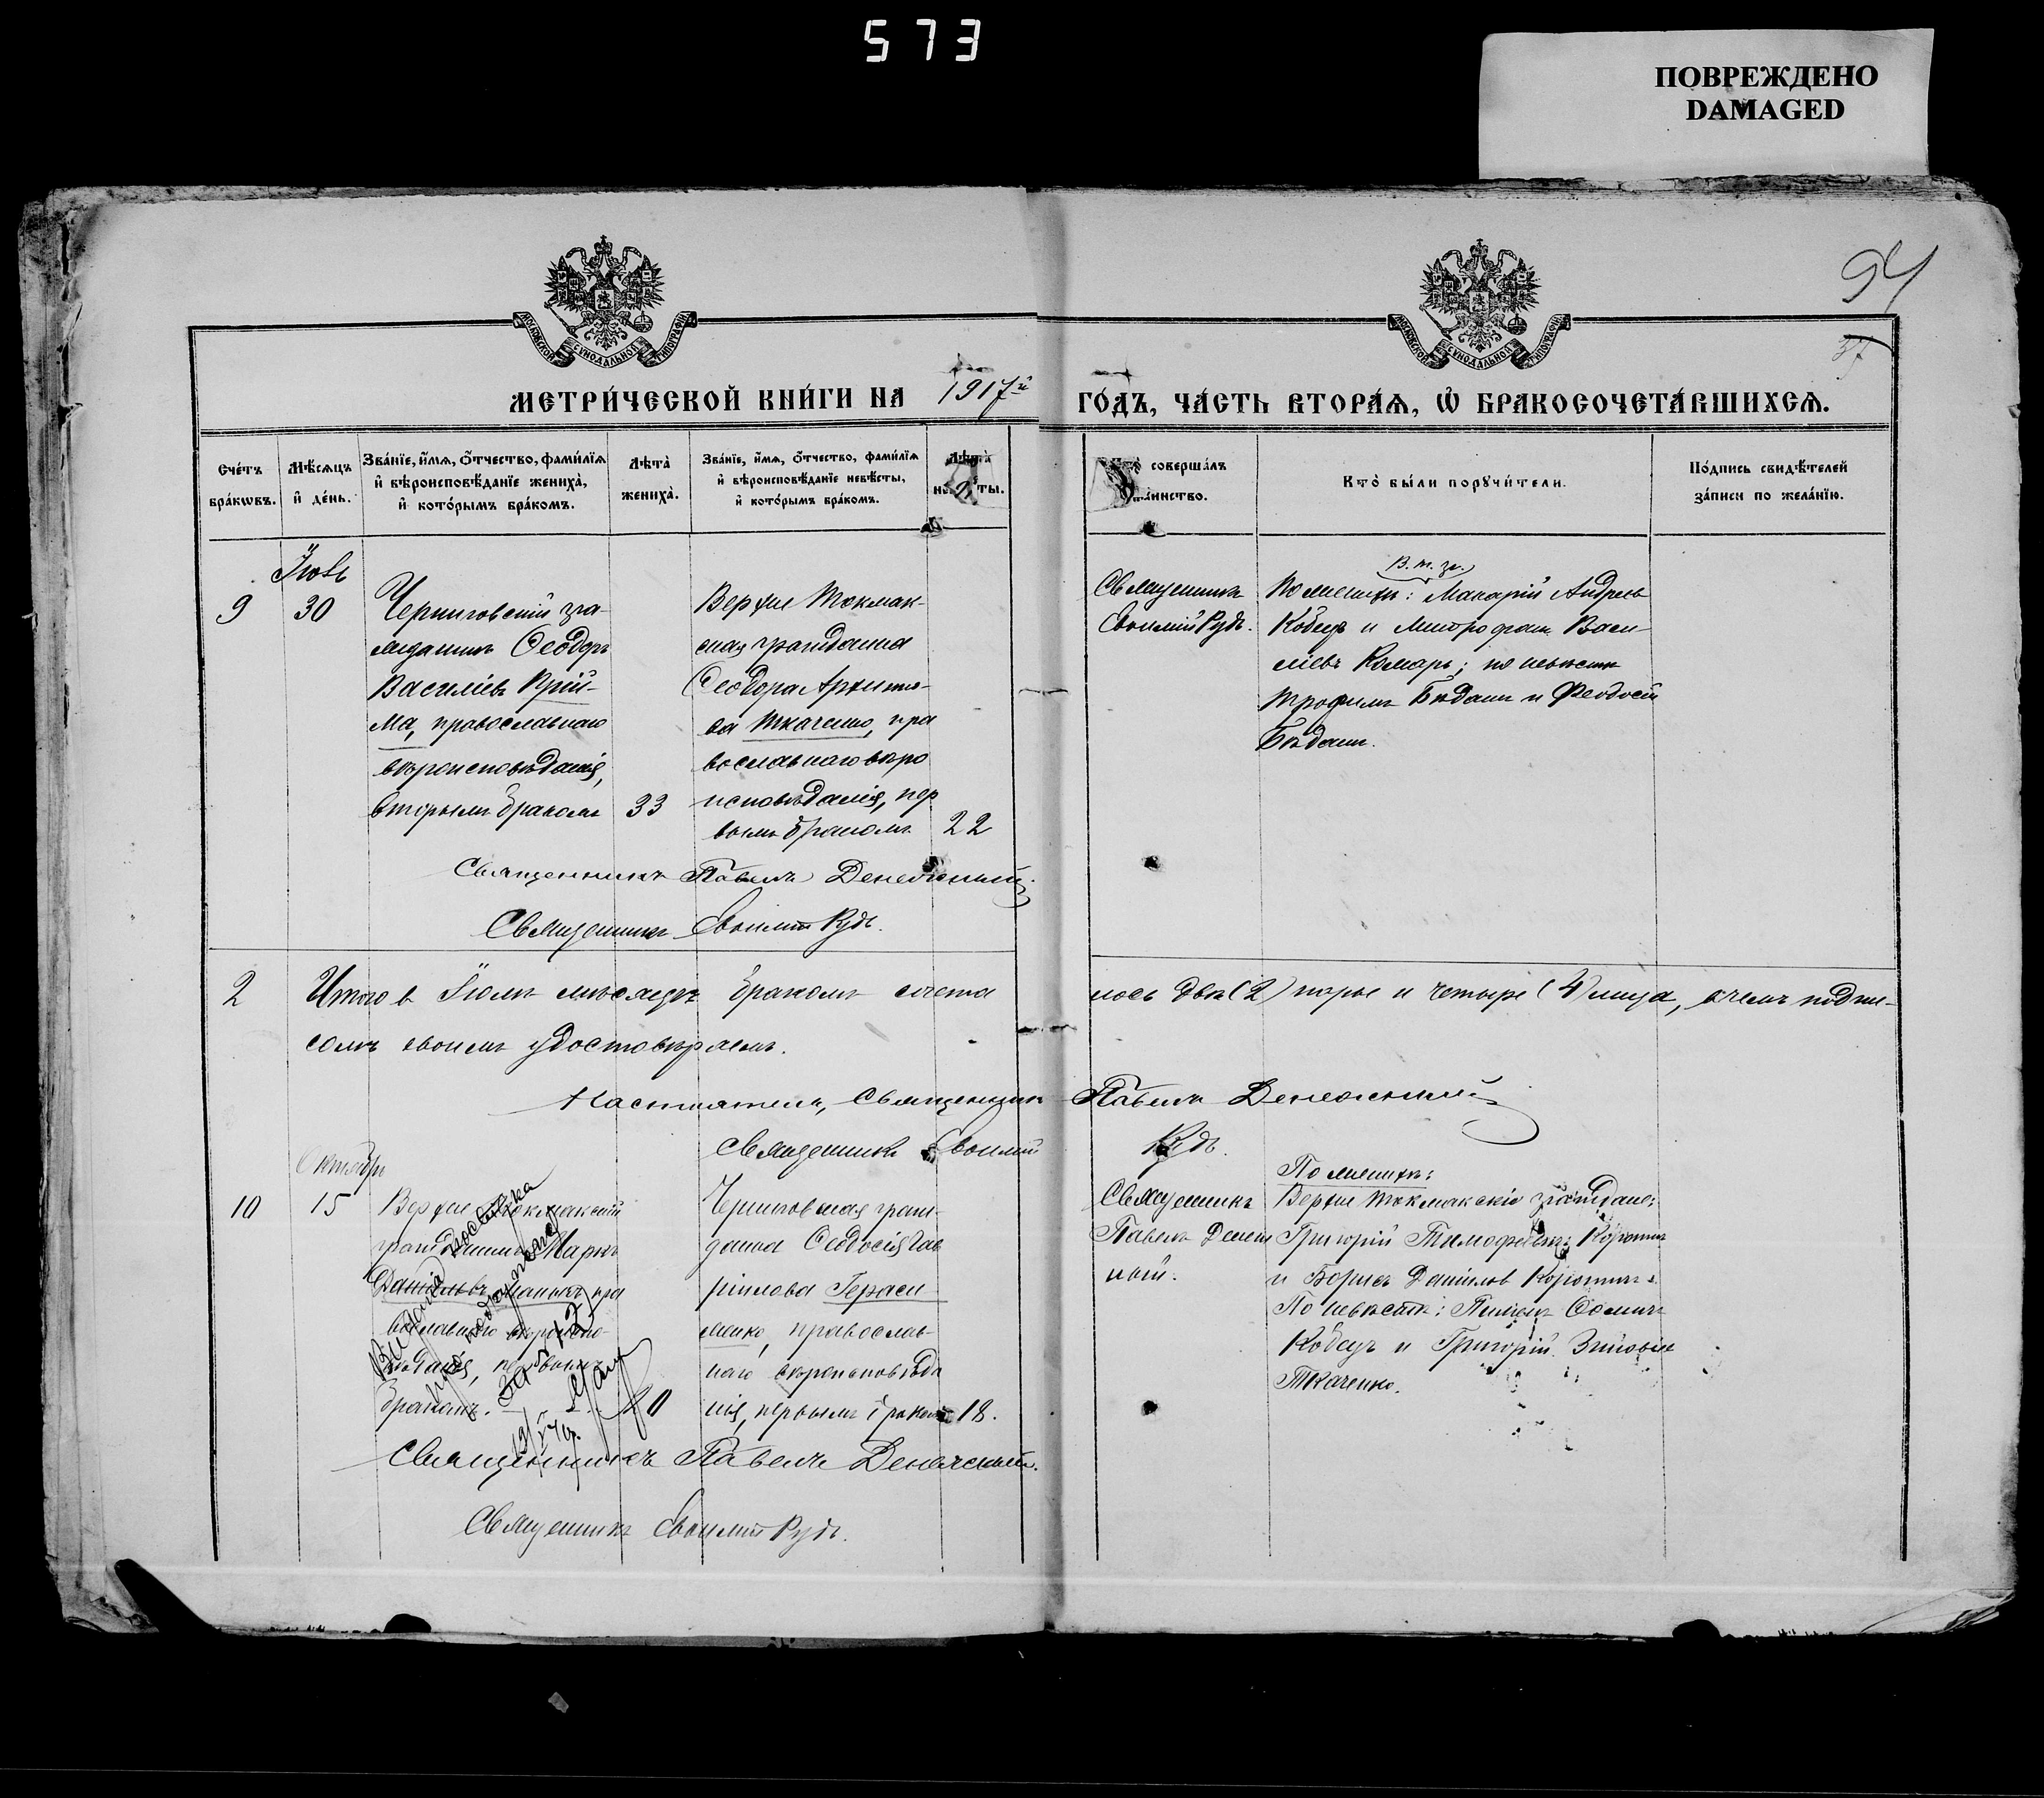 573
ПОВРЕЖДЕНО
DAMAGED
94
37
МОСКОВСКОЙ СѴНОДАЛЬНОЙ ТИПОГРАФІИ
МОСКОВСКОЙ СѴНОДАЛЬНОЙ ТИПОГРАФІИ
МЕТРИ́ЧЕСКОЙ КНИ́ГИ НА 1917й ГО́ДЪ, ЧА́СТЬ ВТОРА́Ѧ, Ѡ҆ БРАКОСОЧЕТА́ВШИХСѦ.
Сче́тъ бра́кѡвъ.
Мѣ́сяцъ и҆ де́нь.
Зва́нїе, и҆́мѧ, о҆́тчество, фами́лїѧ и҆ вѣроисповѣ́данїе жениха̀, и҆ кото́рымъ бра́комъ.
Лѣта̀ жениха̀.
Зва́нїе, и҆́мѧ, о҆́тчество, фами́лїѧ и҆ вѣроисповѣ́данїе невѣ́сты, и҆ кото́рымъ бра́комъ.
Лѣта̀
совершáлъ
таинство.
Кто̀ бы́ли порꙋчи́тели.
По́дпись свидѣ́телей за́писи по жела́нїю.
Іюль
9
30
Черниговскій гра-
жданинъ Ѳеодоръ
Василіевъ Крій-
ма, православнаго
вѣроисповѣданія,
вторымъ бракомъ
33
Верхне Токмак-
ская гражданка
Ѳеодора Архипо-
ва Ткаченко, пра
вославнаго вѣро
исповѣданія, пер
вымъ бракомъ
22
Священникъ
Евѳимій Рудь.
По женихѣ: Макарій Андреевъ
Кобецъ и Митрофанъ Васи-
ліевъ Комаръ; по невѣстѣ
Трофимъ Бѣданъ и Феодосій
Бѣданъ.
Священникъ Павелъ Денежный
Священникъ Евѳимій Рудь.
2
Итого въ Іюлѣ мѣсяцѣ бракомъ сочета лось двѣ (2) пары и четыре (4) лица, в чемъ подпи-
сомъ своимъ удостовѣряемъ.
Настоятель, Священникъ Павелъ Денежный
Священникъ Евѳимій Рудь.
Октябрь
10
15
Верхне Токмакскій
гражданинъ Маркъ
Даніиловъ
пра
вославнаго вѣроиспо-
вѣданія, первымъ
бракомъ.
20
Черниговская граж-
данка Ѳеодосія Гав
ріилова Гераси-
менко, православ-
наго вѣроисповѣда
нія, первымъ бракомъ
18.
Священникъ
Павелъ Денеж
ный.
По женихѣ:
Верхне Токмакскіе граждане:
Григорій Тимофеевъ
и Борисъ Даніиловъ
По невѣстѣ:
Кобецъ и Григорій
Ткаченко.
Священникъ Павелъ Денежный.
Священникъ Евѳимій Рудь.